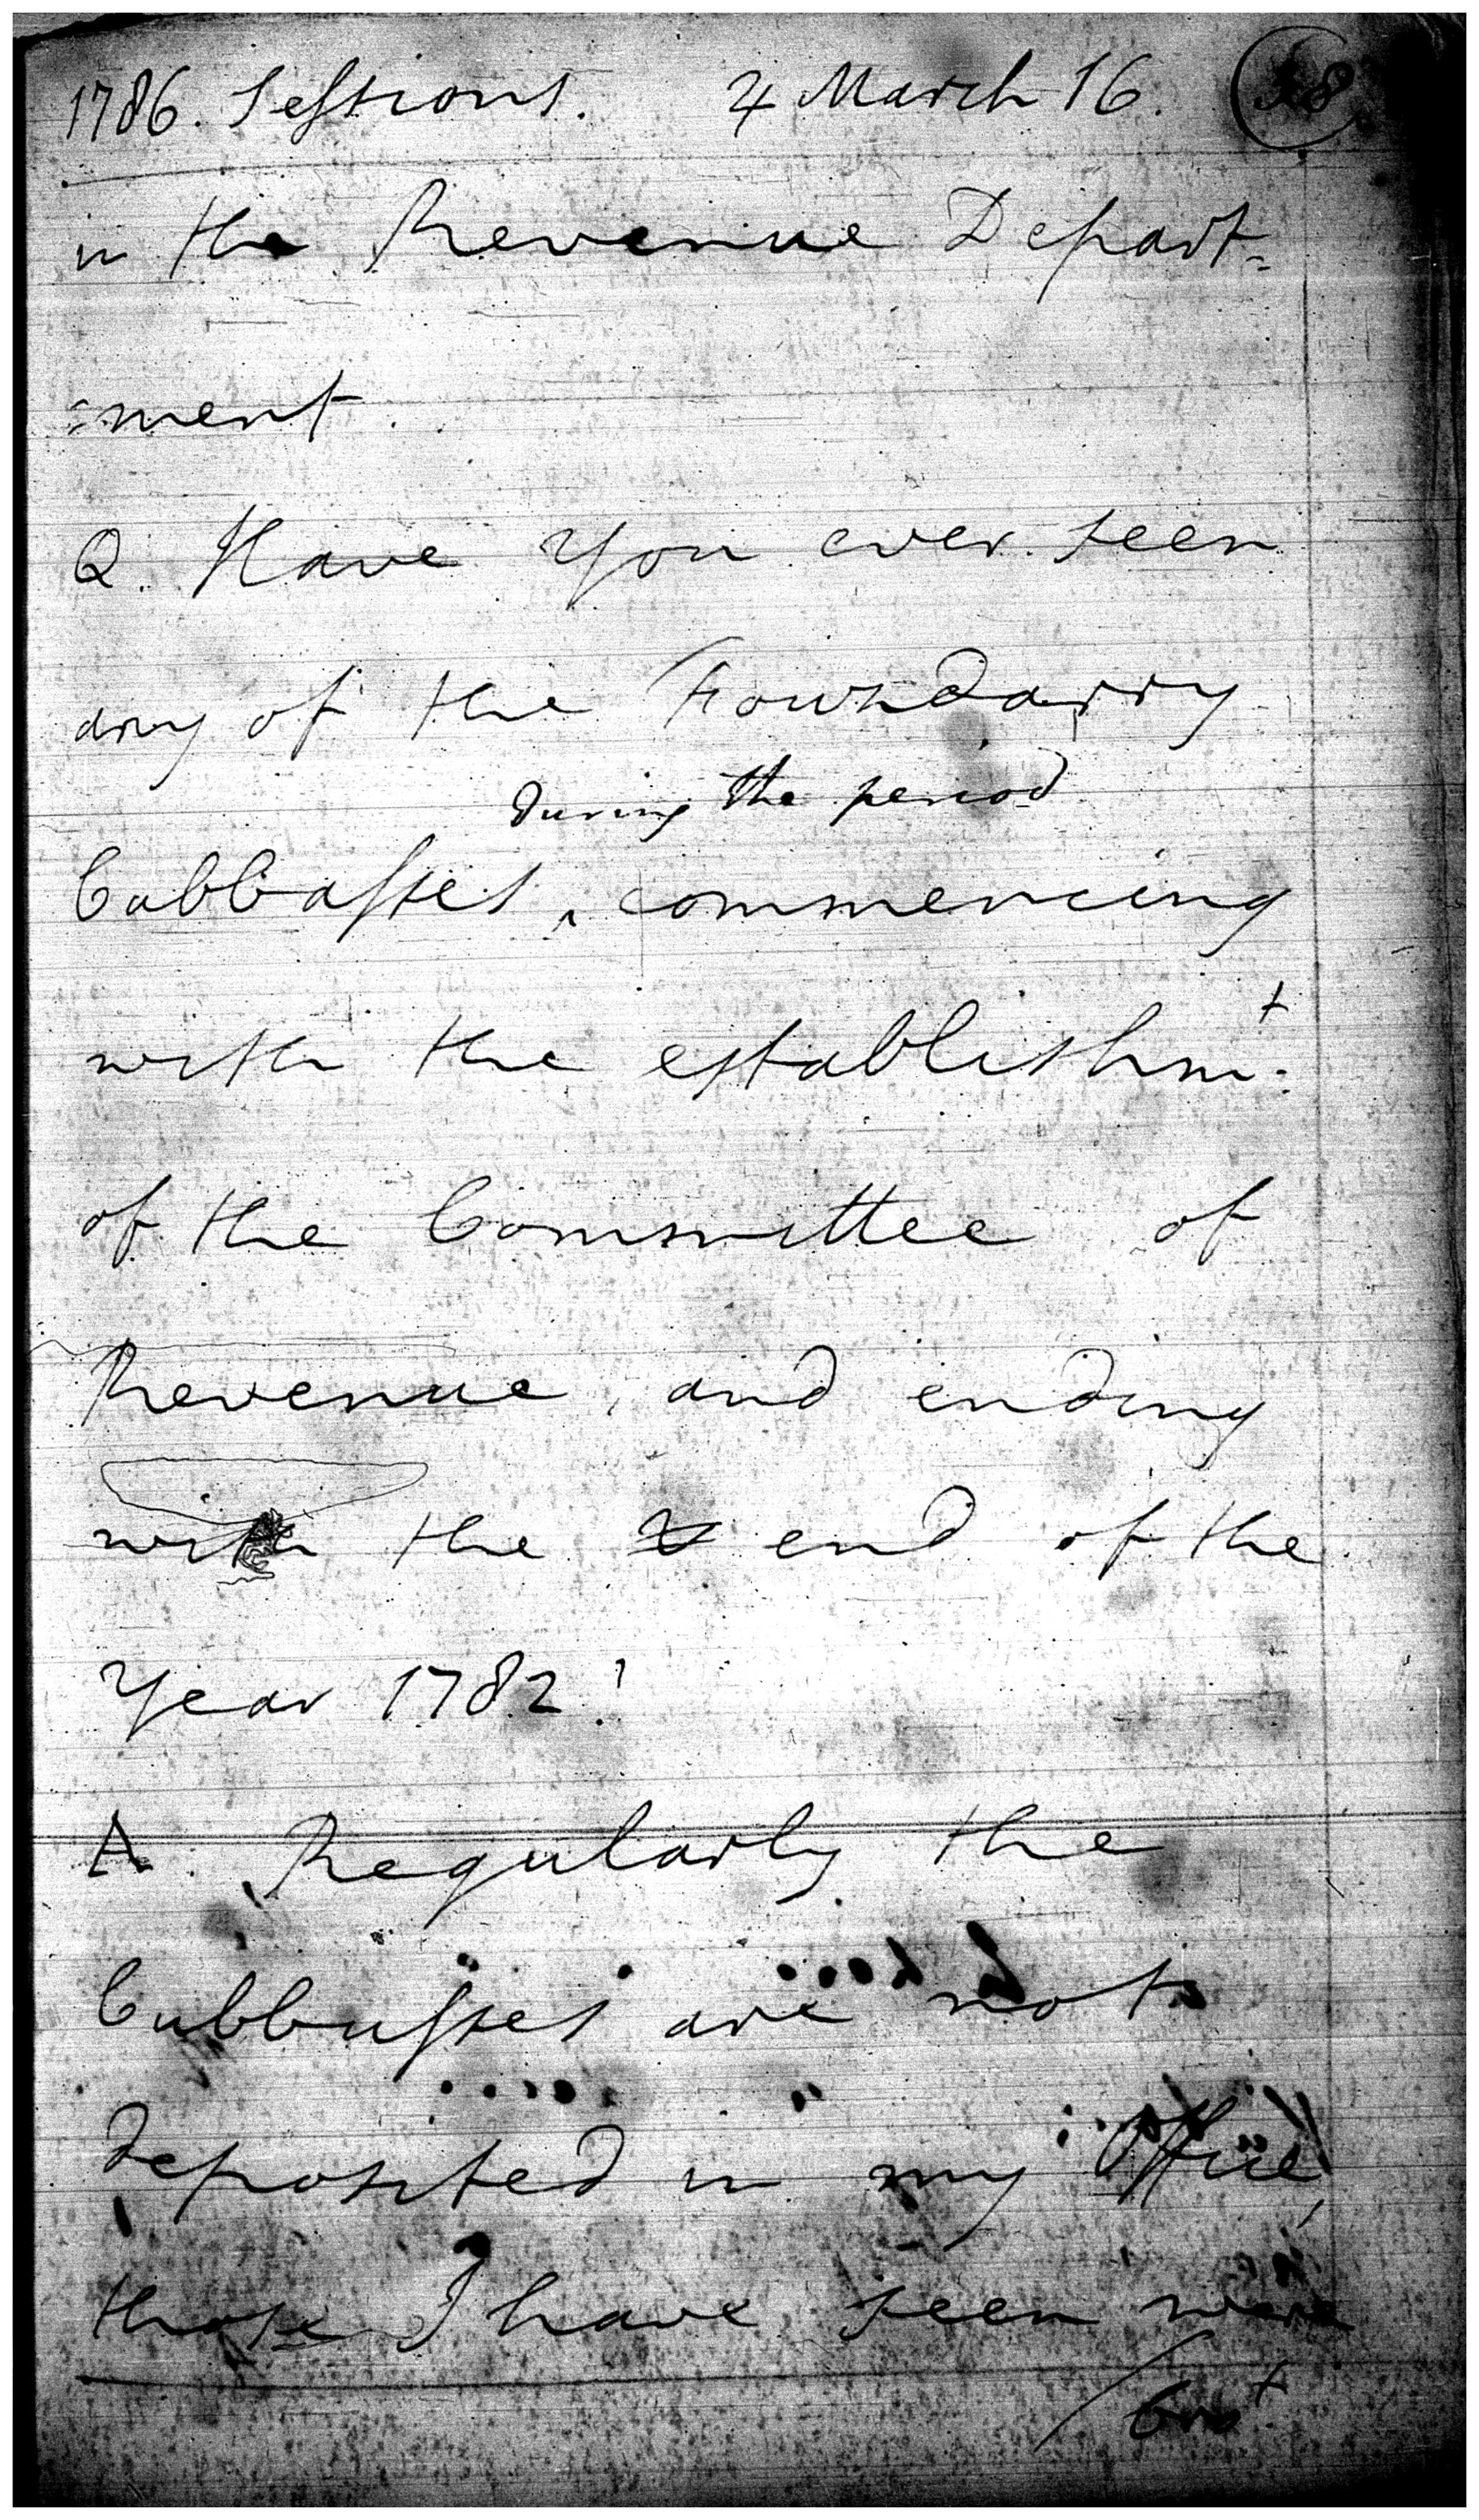 1786. Sessions. 4 March 16. 58
in the Revenue Depart=
=ment.
Q. Have You ever seen
any of the Foundarry
during the period
Cabbasses ‸ commencing
with the establishmt.
of the Committee of
Revenue, and ending
with the end of the
Year 1782?
A. Regularly the
Cubbusses are not
deposited in my Office,
those I have seen were